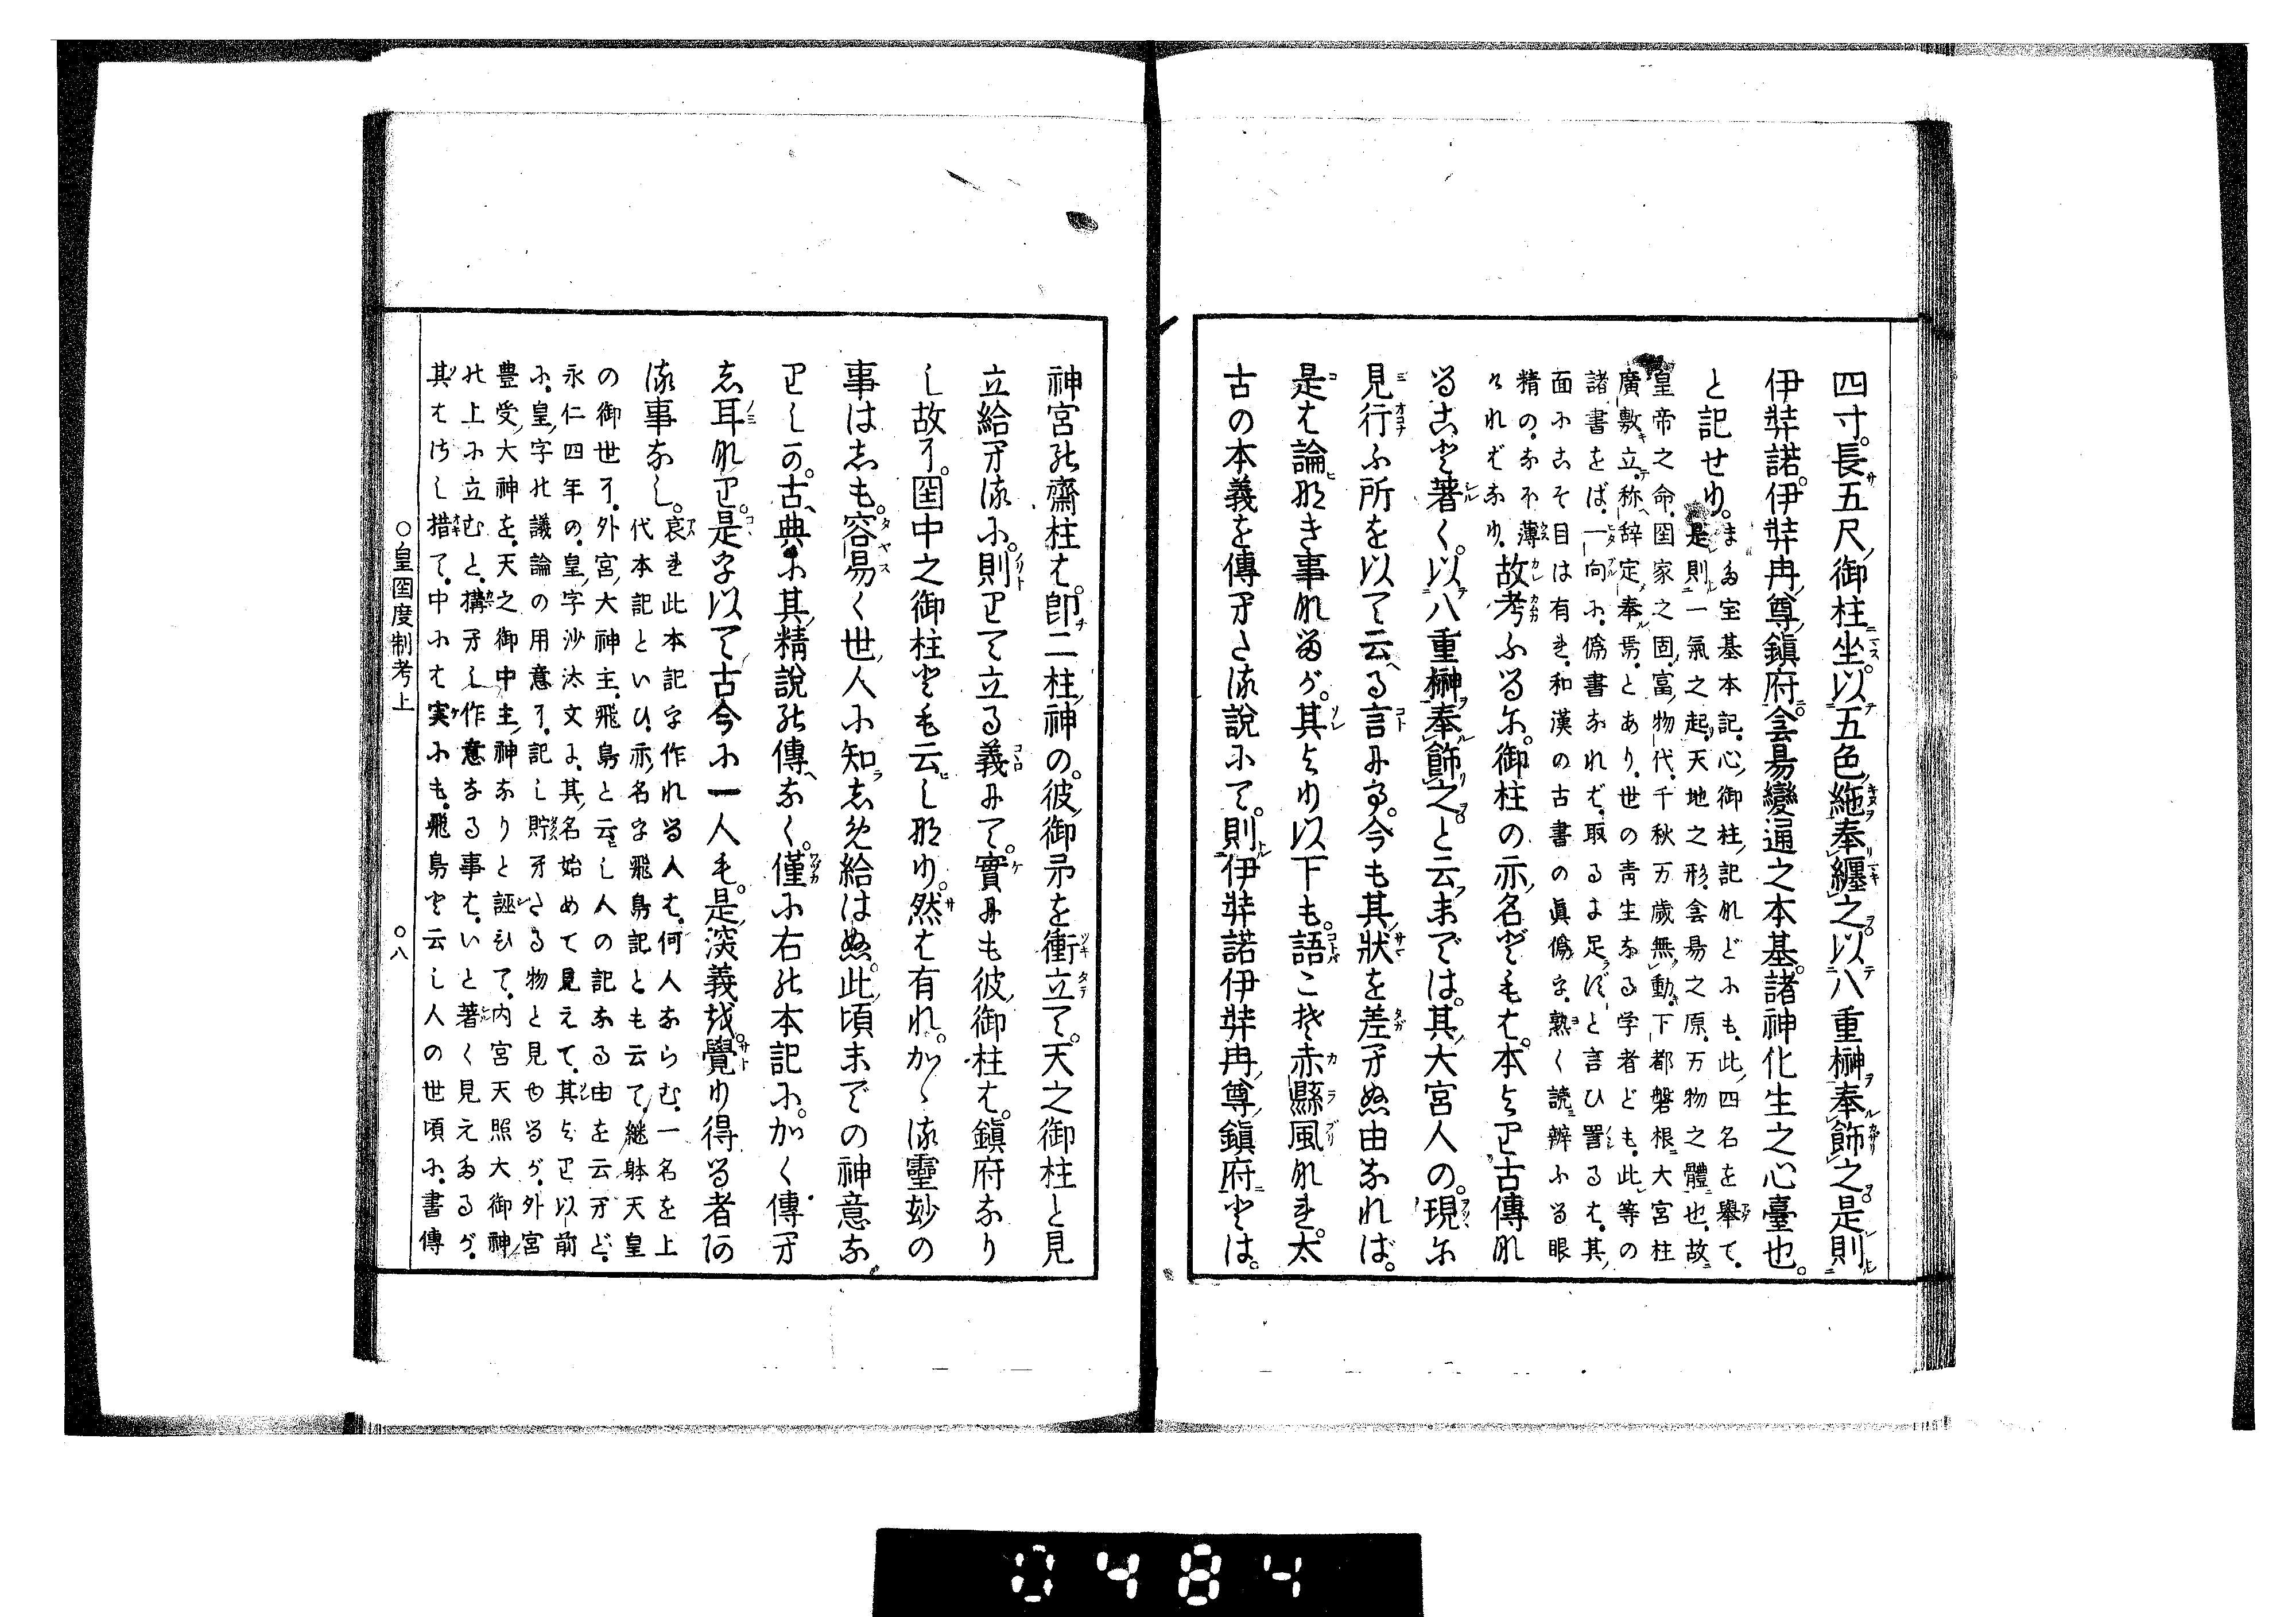 四寸。長五尺。御柱坐。以五色絁奉纏之。以八重榊奉飾之。是則
伊弉諾。伊弉冉尊鎮府。侌昜變通之本基。諸神化生之心臺也。
と記せり。
また宝基本記。心御柱記れどにも。此四名を擧て。
是則一氣之起。天地之形。侌昜之原。万物之體也。故
皇帝之命。国家之固。富物代。千秋万歳無動。下都磐根大宮柱
廣敷立。称辞定奉焉。とあり。世の青生なる学者ども。此等の
諸書をば。一向に。偽書なれば。取るに足らずと言ひ詈るは。其
面にこそ目は有れ。和漢の古書の眞偽を。熟く読辨ふる眼
精の。なき薄ければなり。
故考ふるに。御柱の亦名ども は。本より古傳れ
ること著く。以八重榊奉飾之。と云までは。其大宮人の。現に
見行ふ所を以て云る言にて。今も其狀を差てぬ由なれば。
是は論ひ那き事なるが。其より以下も。語こそ赤縣風なれ。太
古の本義を傳へたる説にて。則伊弉諾伊弉冉尊鎮府とは。
神宮の齋柱は。卽二柱神の。彼御矛を衝立て。天之御柱と見
立給へるに。則りて立る義にて。實にも彼御柱は。鎮府なり
し故に。国中之御柱とも云しなり。然は有れ。かゝる霊妙の
事はしも。容易く世人に知しめ給はぬ。此頃までの神意な
りしか。古典に其精説の傳なく。僅に右の本記に。かく傳へ
し耳なり。是を以て古今に一人も。是深義を。覺り得る者な
る事なし。
哀れ此本記を作れる人は。何人ならむ。一名を上
代本記といひ。亦名を飛鳥記とも云て。継躰天皇
の御世に。外宮大神主。飛鳥と云し人の記なる由を云へど。
永仁四年の。皇字沙汰文に。其名始めて見えて。其より以前
に。皇字の議論の用意に。記し貯へたる物と見ゆるが。外宮
豊受大神を。天之御中主神なりと誣ひて。内宮天照大御神
の上に立むと。構へし作意なる事は。いと著く見えたるが。
其はけし措て。中には実にも。飛鳥と云し人の世頃に。書傳
○皇国度制考上
○八
0484